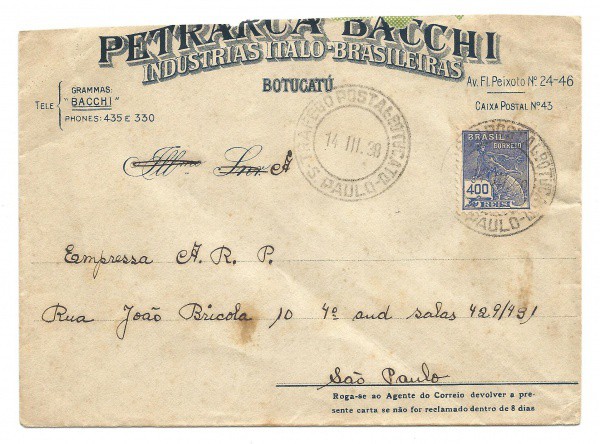 PETRARCA BACCHI
INDUSTRIAS ITALO-BRASILEIRAS
BOTUCATÚ
TELE
GRAMMAS:
"BACCHI"
PHONES: 435 E 330
Av. Fl. Peixoto Nº 24-46
CAIXA POSTAL Nº 43
14 III. 38
S. PAULO
BRASIL
CORREIO
400
REIS
PAULO
Illmo Snr. A
Empressa A. R. P.
Rua João Bricola 10 4º and salas 429/431
São Paulo
Roga-se ao Agente do Correio devolver a pre-
sente carta se não for reclamado dentro de 8 dias